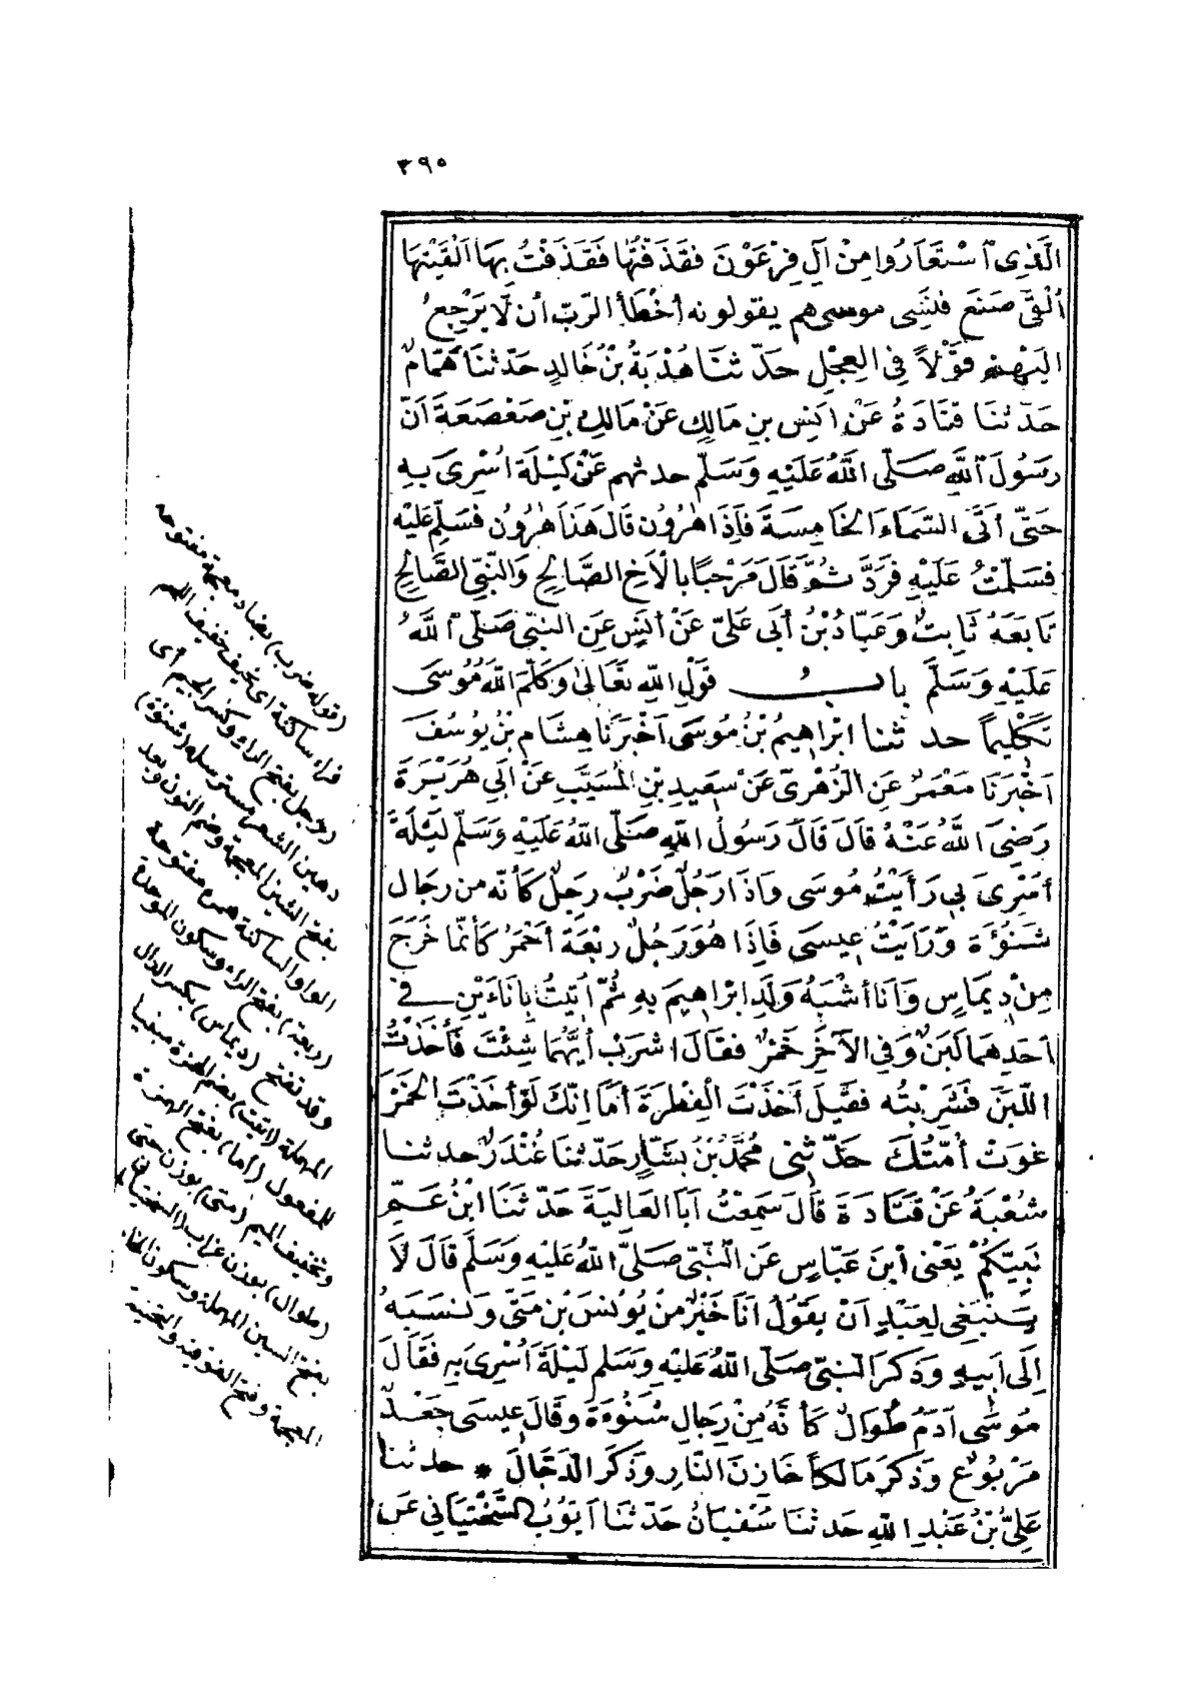 ٣٩٥
الَّذِى ٱسْتَعَارُوا مِنْ آلِ فِرْعَوْنَ فقَذَفْتُهَا فَقَذَفْتُ بِهَا اَلْقَيْتُهَا
أَلْقَىَّ صَنَعَ فَنَسِىَ موسى هم يقولونه أخْطَأ الرَّبّ أن لَّا يَرْجِعُ
اليْهِمْ قوْلاً فِى العِجْلِ حَدّثنَا هُدْبَةُ بْنُ خَالِدٍ حَدّثنَا هَمَّامٌ
حَدّثنَا قتَادَةُ عَنْ اَنَسِ بنِ مَالِكٍ عَنْ مَالِكِ بْنِ صَعْصَعَةَ اَنّ
رَسُولَ ٱللَّهِ صَلّى اللَّهُ عَلَيْهِ وَسَلّم حدثهم عَنْ لَيْلَةَ اُسْرِىَ بِهِ
حَتّى أتَى السَّمَاءَ الخَامِسَةَ فَإِذَا هٰرُونُ قَالَ هَذَا هٰرُونُ فَسَلِّمْ عَلَيْهِ
فسَلّمْتُ عَلَيْهِ فَرَدَّ ثُمَّ قَالَ مَرْحَبًا بالْأَخِ الصَّالِحِ وَالنَّبِىِّ الصَّالِحِ
تَابَعَهُ ثَابِتٌ وَعَبَّادُ بْنُ أبَى عَلىّ عَنْ أنَسٍ عَنِ النبّىِ صَلّى ٱللَّهُ
عَلَيْهِ وَسَلَّمَ بابُ قَوْلِ اللّهِ تعَالىٰ وَكَلّمَ اللَّهُ مُوُسَى
تَكْلِيماً حدثنا ابْراهِيمُ بْنُ مُوسَى اَخْبَرَنَا هِشَام بْنُ يوُسُفَ
اَخْبَرَنَا مَعْمَرٌ عَنِ الزّهْرِىّ عَنْ سَعِيدِ بْنِ المُسَيَّبِ عَنْ اَبِى هُرَيْرَةَ
رَضِىَ اللَّهُ عَنْهُ قالَ قَالَ رَسُولُ اللّهِ صَلّى اللَّهُ عَلَيْهِ وَسَلّم لَيْلَةَ
أُسْرِىَ بِى رَأَيْتُ مُوسَى وَاذَا رَجُلٌ ضَرْبٌ رَجِلٌ كَأنّه من رِجَالِ
شَنُوُءَةَ وَرَايْتُ عِيسَى فَإِذَا هُوَ رَجُلٌ رَبْعَة أحْمَرُ كَأنّمَا خَرَجَ
مِنْ دِيمَاسٍ وَأنَا أشْبَهُ وَلَدِ ابْرَاهِيمَ بِهِ ثُمّ أُتِيتُ بِإنَاءَيْنِ فى
اَحَدِهِمَا لَبَنٌ وَفِى الآخَرِ خَمْرٌ فقالَ اشرَبْ أَيَّهُمَا شِئْتَ فَأَخَذْتُ
اللّبَنَ فَشَرِبْتُه فقِيلَ أَخَذْتَ الْفِطرَةَ أمَا اِنّكَ لَوْ أخَذْتَ الخَمْرَ
غَوَتْ أُمّتُكَ حَدّثنِى مُحمَّدُ بْنُ بَشّارٍ حَدّثنَا غُنْدَرٌ حدثنا
شُعْبَةُ عَنْ قتَادَةَ قَالَ سَمِعْتُ أبَا العَالِيَةَ حَدّثَنَا ابْنُ عَمِّ
نَبِيّكُمْ يَعْنِى ابنَ عَبّاسٍ عَنِ النّبىّ صَلّى اللَّهُ عَلَيْهِ وَسَلّم قَالَ لاَ
يَنْبَغِى لِعَبْدٍ اَنْ يقُولَ اَنَا خَيْرٌ مِنْ يُونُسَ بْنِ مَتَّى وَنَسَبَهُ
اِلَى اَبِيهِ وَذَكَرَ النّبِىّ صَلّى اللَّهُ عَلَيْهِ وَسَلّم لَيْلَةَ أُسْرِىَ بِهِ فَقَالَ
مُوسَى آدَمُ طُوَالٌ كَأنّهُ مِنْ رِجَالِ شَنُوُءَةَ وقَالَ عِيسَى جَعْدٌ
مَرْبُوعٌ وَذَكَرَ مَالِكاً خَازِنَ النّارِ وَذَكَرَ الدّجّالَ * حدثنا
عَلِىُّ بْنُ عَبْدِ اللّهِ حَدثنَا سُفْيَانُ حَدّثنَا اَيّوُبُ السَّخْتِيَانِى عَن
(قوله ضرب) بضاد معجمة مفتوحة
فراء ساكنة اى نحيف خفيف اللحم
(رجل) بفتح الراء وكسر الجيم أى
دهين الشعر مسترسله (شنوءة)
بفتح الشين المعجمة وضم النون وبعد
الواو الساكنة همزه مفتوحة
(ربعة) بفتح الراء وسكون الموحدة
وقد تفتح (ديماس) بكسر الدال
المهملة (أتيت) بضم الهمزة مبنيا
للمفعول (أما) بفتح الهمزة
وتخفيف الميم (متى) بوزن حتى
(طوال) بوزن غراب (السختيانى)
بفتح السين المهملة وسكون الخاء
المعجمة وفتح الفوقية والتحتية